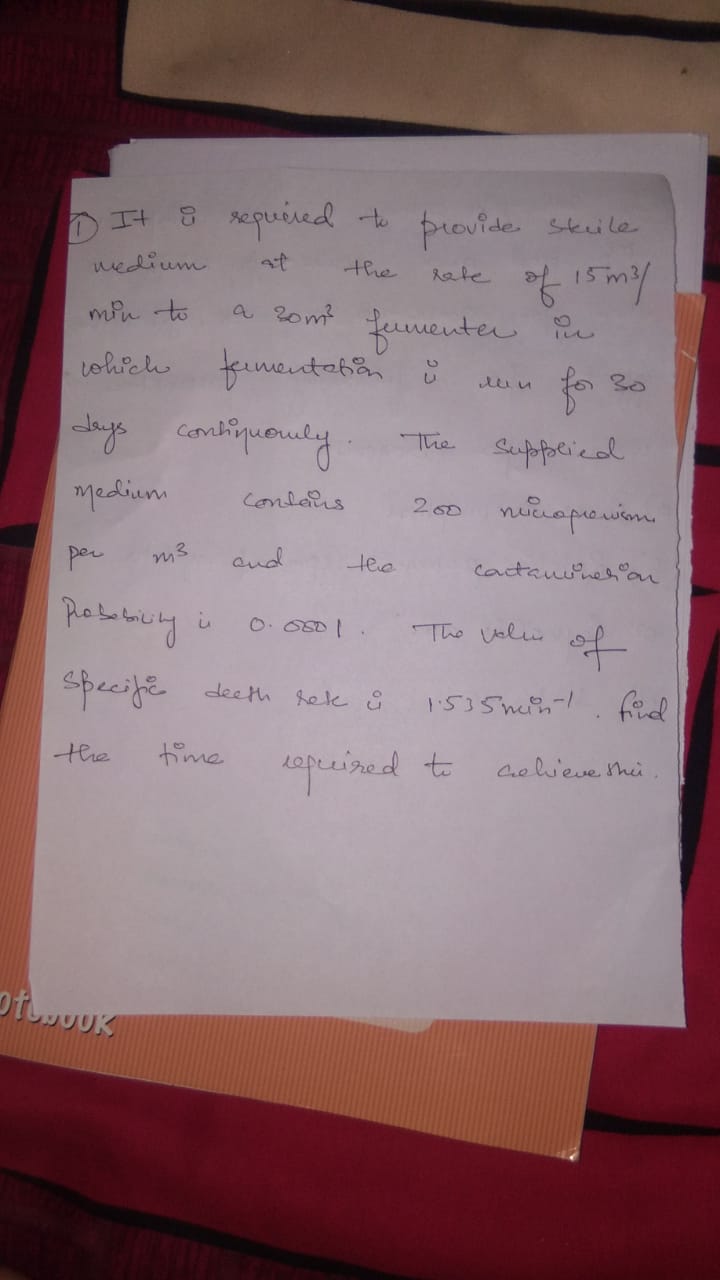 ① It is required to provide sterile
medium at the rate of 15 m³/
min to a 30m³ fermenter in
which fermentation is run for 30
days continuously. The supplied
medium contains 200 microorganism
per m³ and the contamination
Probability is 0.0001. The value of
specific death rate is 1.535min⁻¹. find
the time required to achieve this.
otebook